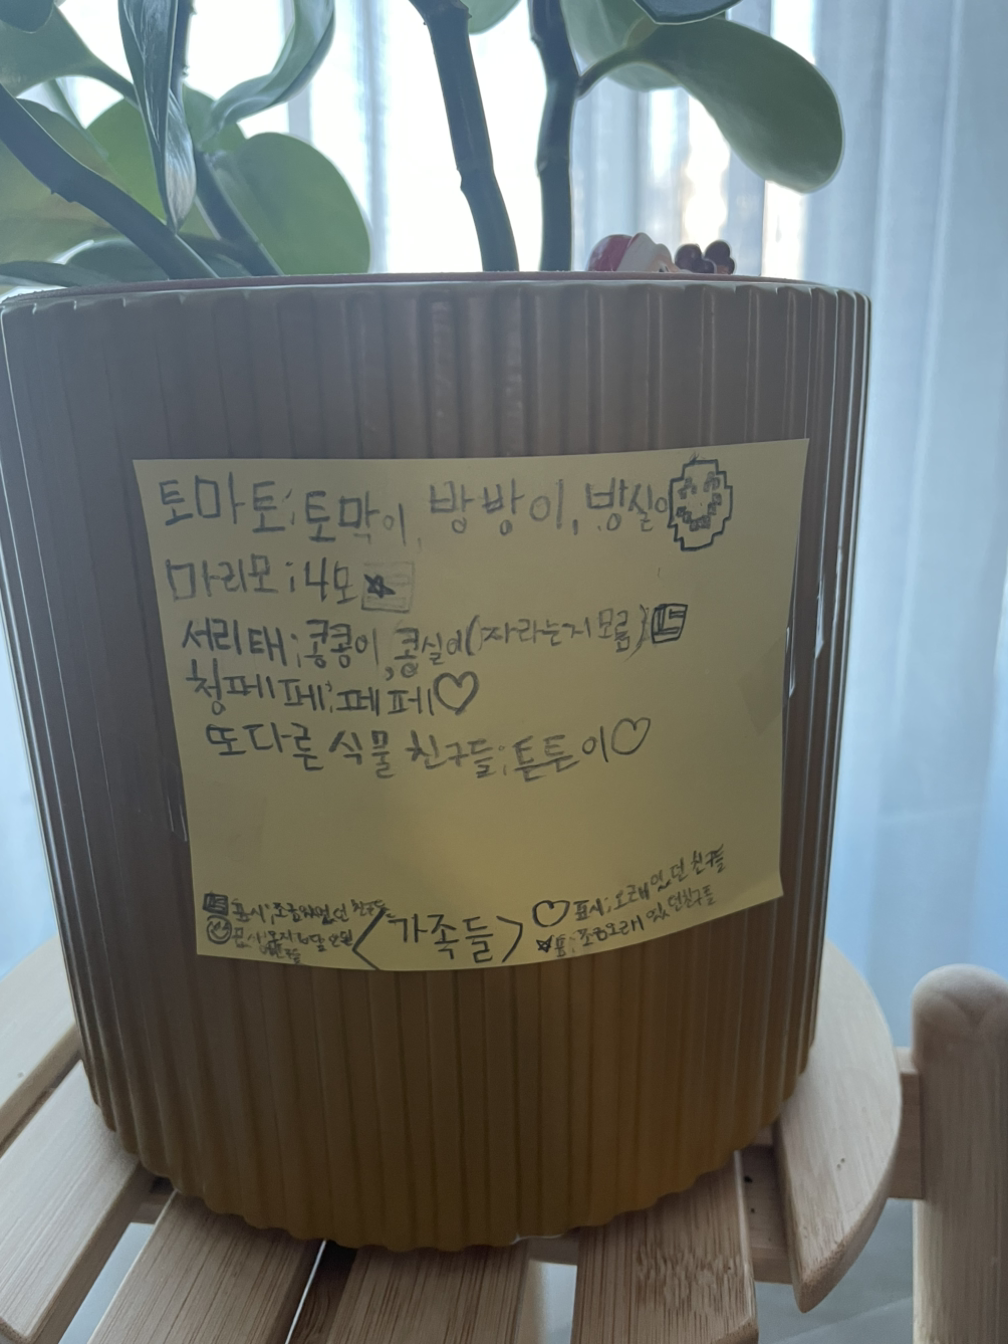 토마토; 토막이, 방방이, 방실이
마리모; 4모
서리태; 콩콩이, 콩실이(자라는지 모름)
청페페; 페페♡
또다른 식물 친구들; 튼튼이♡
표시; 조금있었던 친구들
표시;
<가족들>
♡표시; 오래있던 친구들
★표; 조금오래 있던친구들